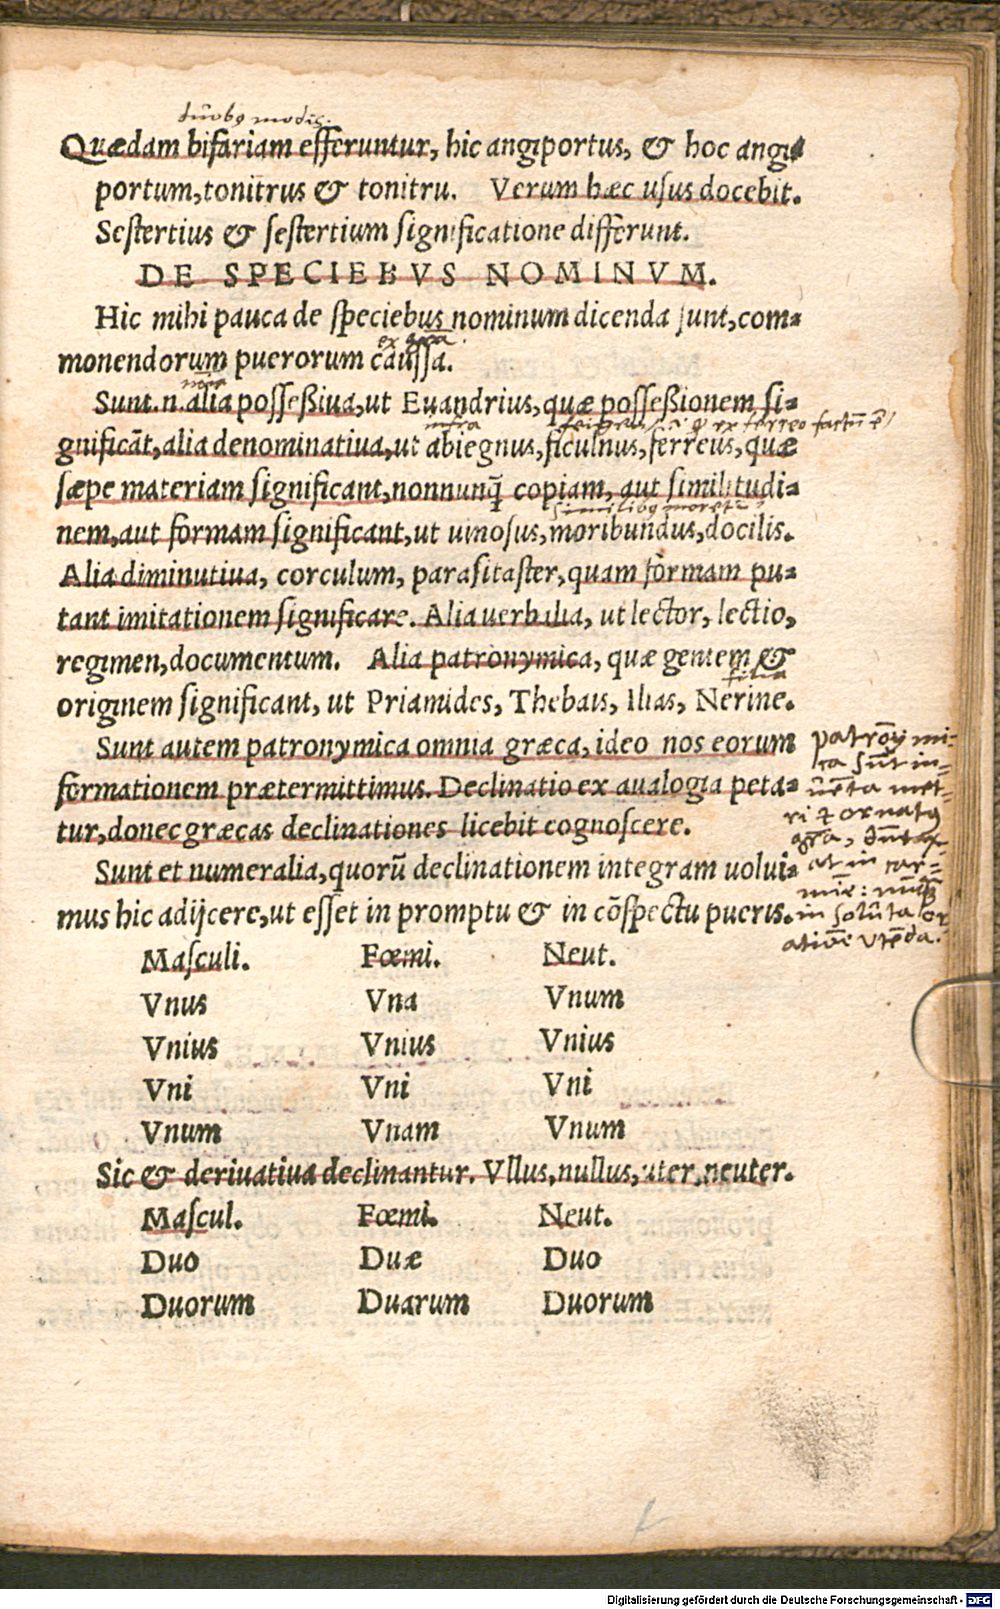 duobq modis.
Quædam bifariam efferuntur, hic angiportus, & hoc angi
portum, tonitrus & tonitru. Verum hæc usus docebit.
Sestertius & sestertium significatione differunt.
DE SPECIEBVS NOMINVM.
Hic mihi pauca de speciebus nominum dicenda sunt, com=
monendorum puerorum caussa.
Sunt. n. alia possessiua, ut Euandrius, quæ possessionem si=
gnificāt, alia denominatiua, ut abiegnus, ficulnus, ferreus, quæ
sæpe materiam significant, nonnunq̃ copiam, aut similitudi=
nem, aut formam significant, ut uinosus, moribundus, docilis.
Alia diminutiua, corculum, parasitaster, quam formam pu=
tant imitationem significare. Alia uerbalia, ut lector, lectio,
regimen, documentum. Alia patronymica, quæ gentem &
filia
originem significant, ut Priamides, Thebais, Ilias, Nerine.
Sunt autem patronymica omnia græca, ideo nos eorum
formationem prætermittimus. Declinatio ex aualogia peta=
tur, donec græcas declinationes licebit cognoscere.
Sunt et numeralia, quorū declinationem integram uolui=
mus hic adijcere, ut esset in promptu & in cōspectu pueris.
patrony mi-
ca sūt in-
uēta met-
ri & ornatq
grā,
at in car-
in soluta or
atiōe utēda.
Masculi. Fœmi. Neut.
Vnus Vna Vnum
Vnius Vnius Vnius
Vni Vni Vni
Vnum Vnam Vnum
Sic & deriuatiua declinantur. Vllus, nullus, uter, neuter.
Mascul. Fœmi. Neut.
Duo Duæ Duo
Duorum Duarum Duorum
Digitalisierung gefördert durch die Deutsche Forschungsgemeinschaft - DFG